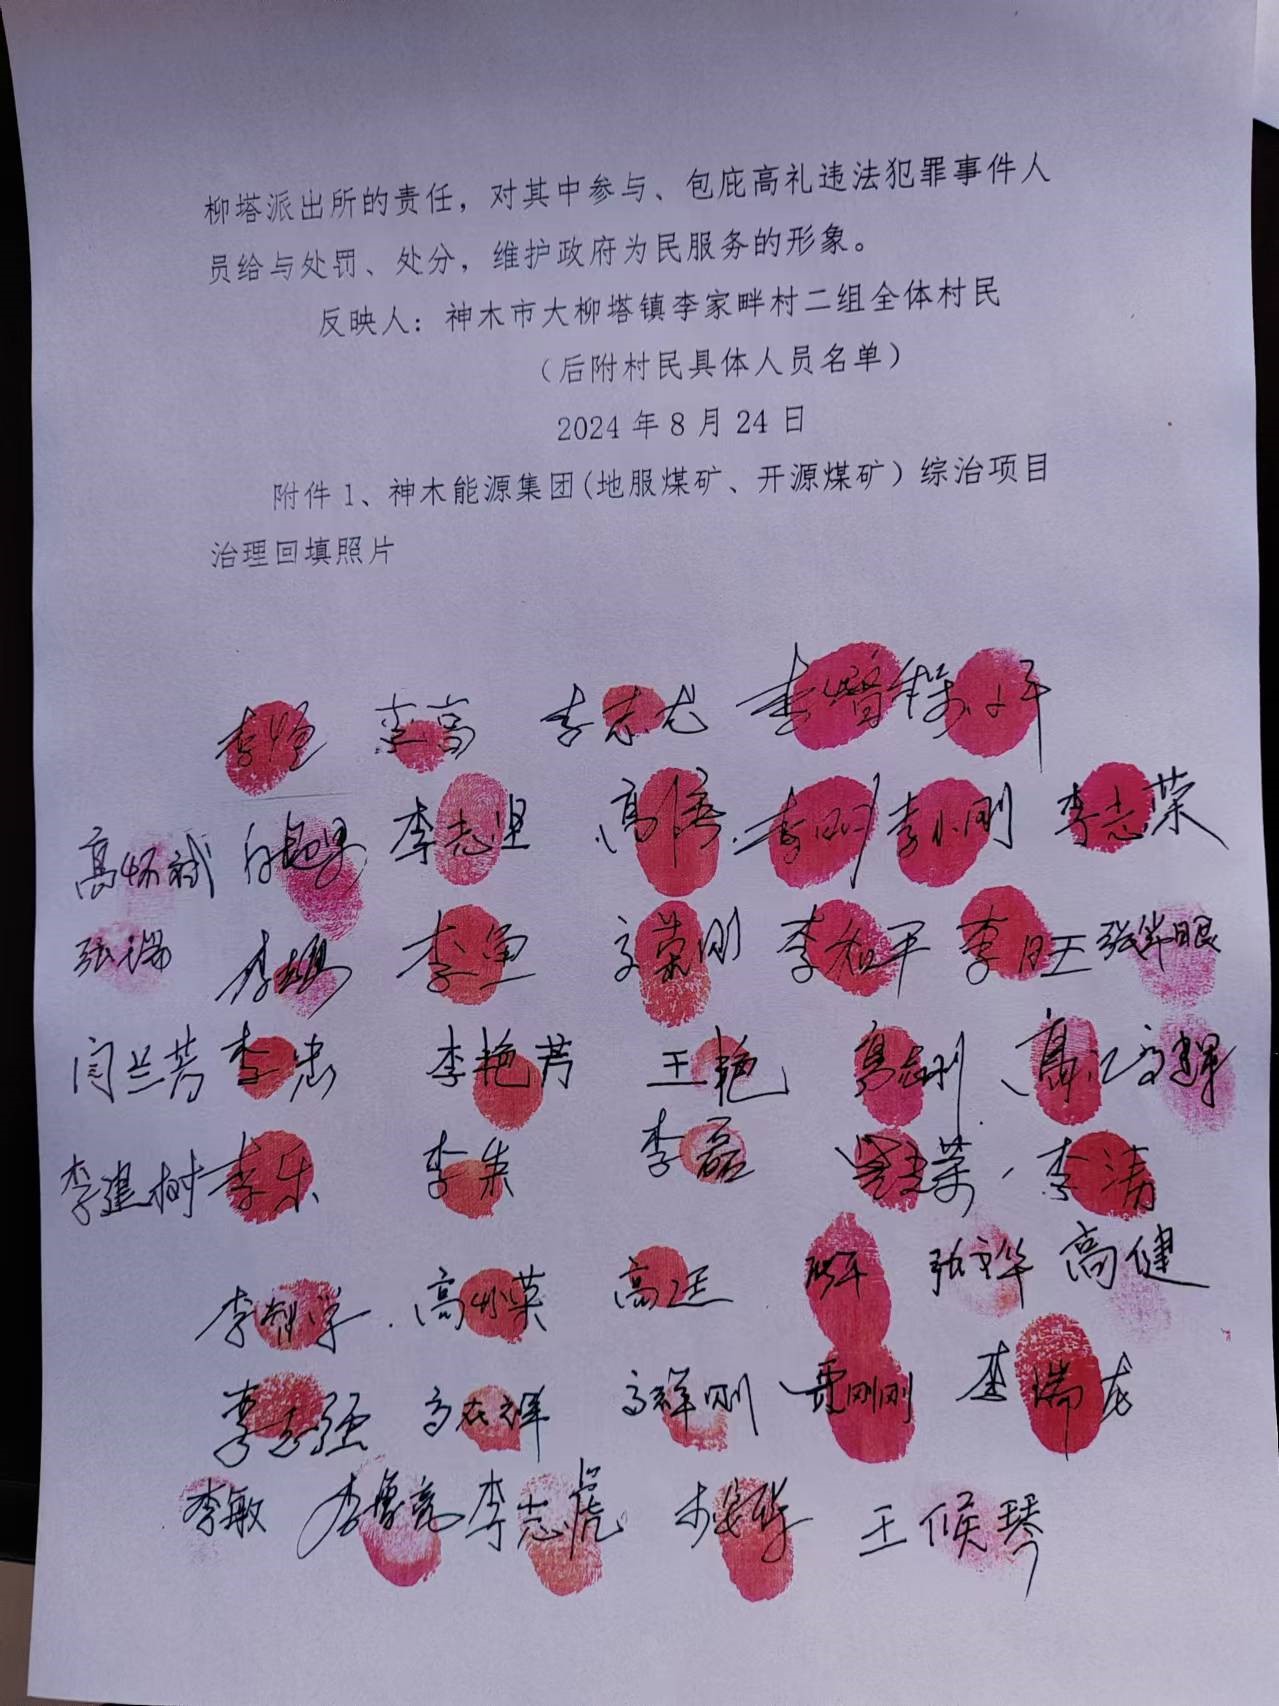 柳塔派出所的责任，对其中参与、包庇高礼违法犯罪事件人
员给与处罚、处分，维护政府为民服务的形象。
反映人：神木市大柳塔镇李家畔村二组全体村民
（后附村民具体人员名单）
2024年8月24日
附件1、神木能源集团(地服煤矿、开源煤矿）综治项目
治理回填照片
李高 李志龙
高怀斌 李志坚 李小刚 李志荣
张瑞 李军 李旺
闫兰芳 李忠 李艳芳 王艳 高志刚
李建树 李东 李磊 李涛
李智学 高小英 高健
李志强 高群刚 贾刚刚 李瑞龙
李敏 李志虎 王候琴